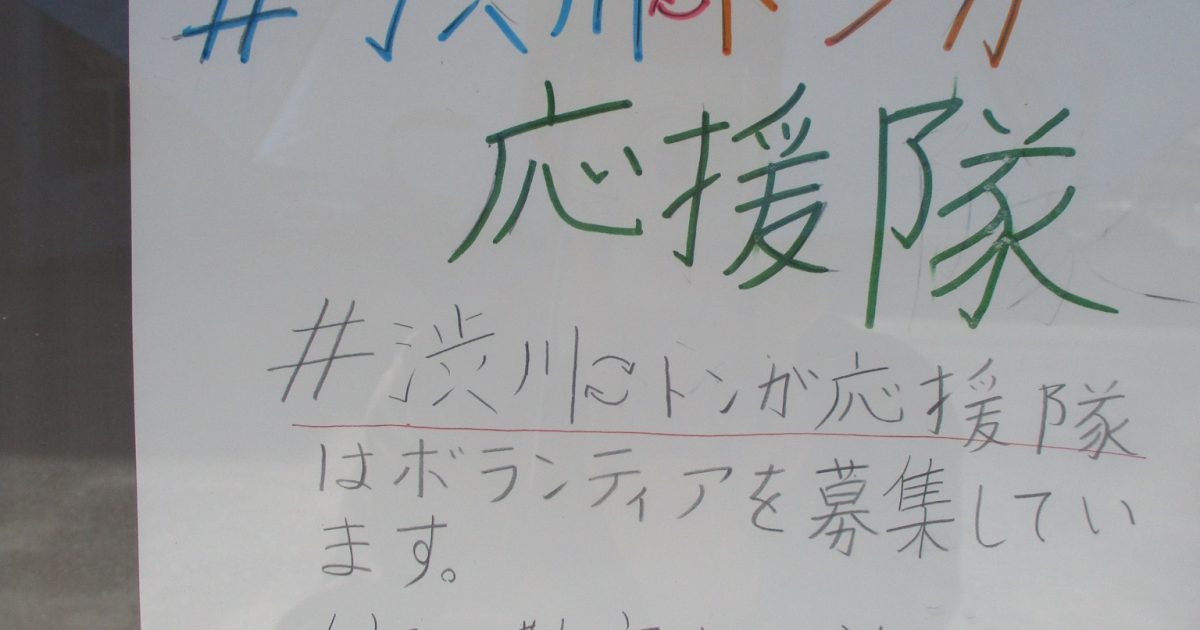 #渋川⇄トンガ
応援隊
#渋川⇄トンガ応援隊
はボランティアを募集してい
ます。